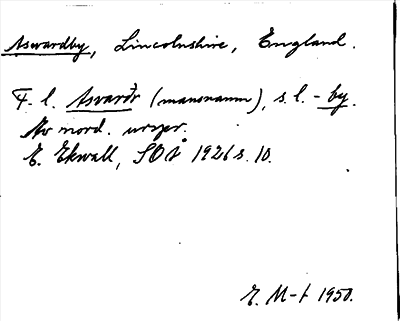 Aswardby, Lincolnshire, England.
F. l. Asvarðr (mansnamn), s. l. - by.
Av nord. urspr.
E. Ekwall, SOÅ 1926 s. 10.
E. M-t 1950.